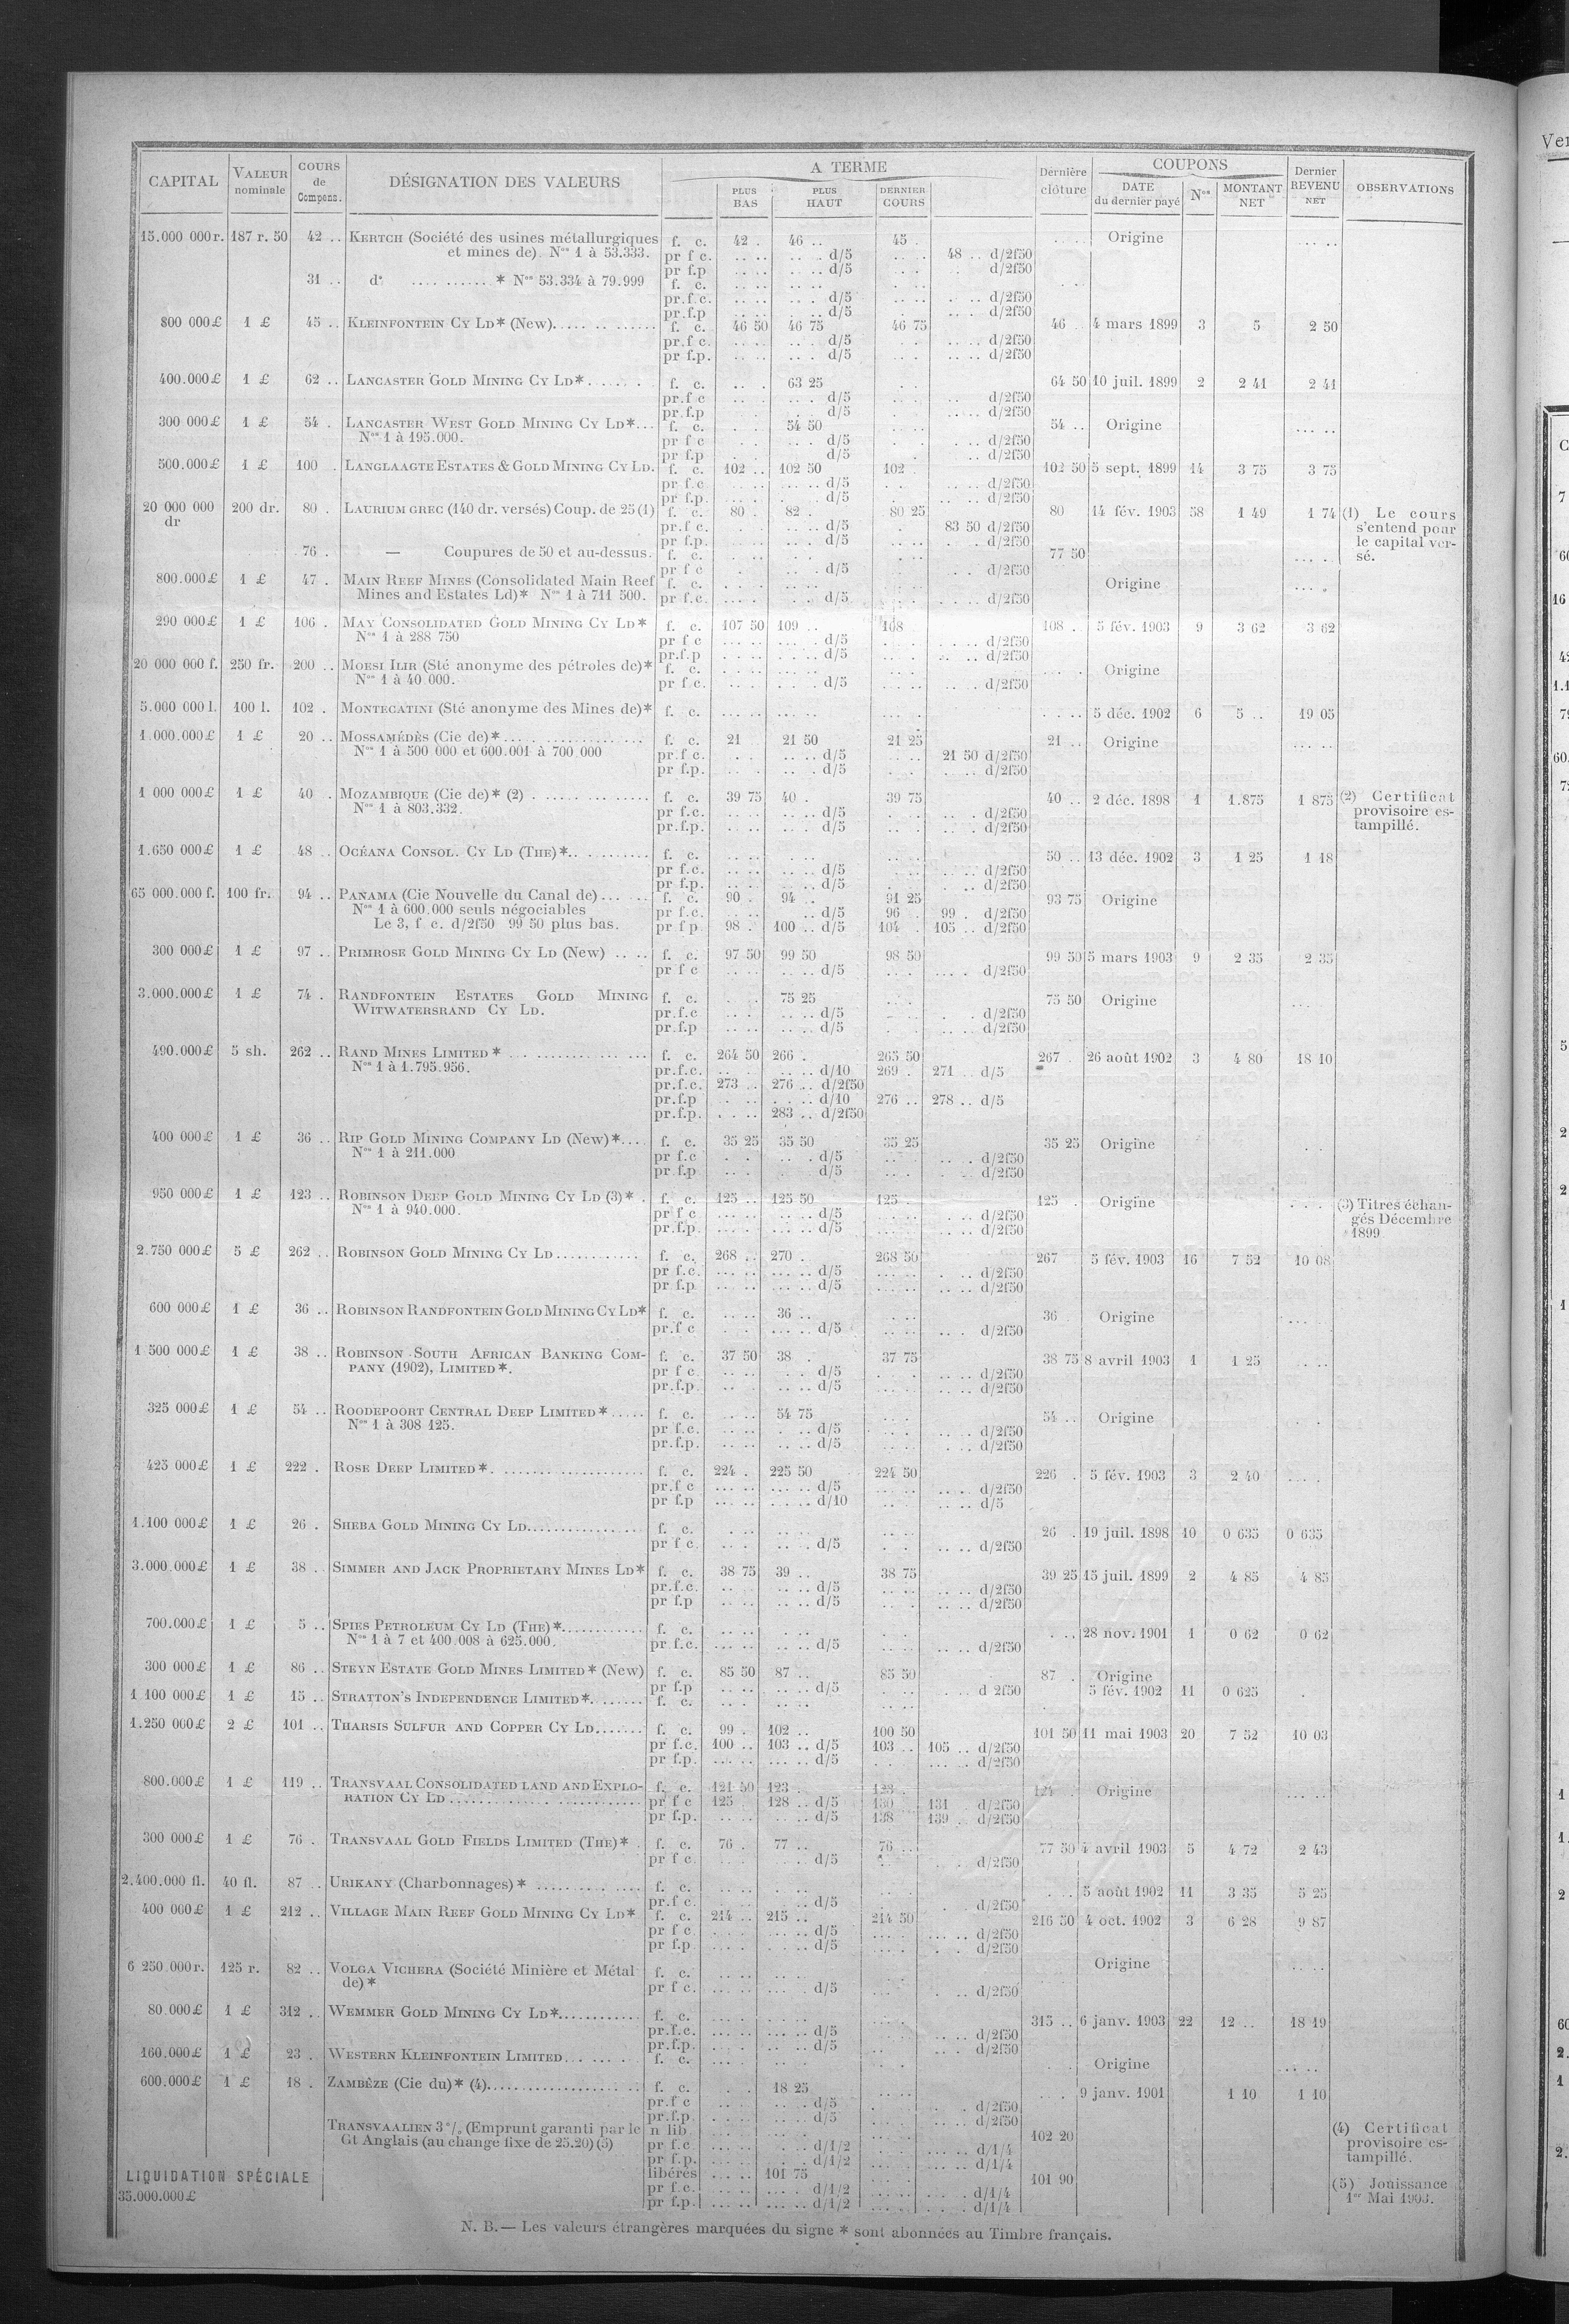 CAPITAL VALEUR nominale COURS de Compens. DÉSIGNATION DES VALEURS A TERME PLUS BAS PLUS HAUT DERNIER COURS Dernière clôture COUPONS DATE du dernier payé Nos MONTANT NET Dernier REVENU NET OBSERVATIONS
15.000 000 r. 187 r. 50 42 .. KERTCH (Société des usines métallurgiques f. c. 42 . 46 .. 45 . Origine
et mines de). Nos 1 à 53.333. pr f c. d/5 48 .. d/2f50
pr f.p d/5 d/2f50
31 .. do * Nos 53.334 à 79.999 f. c.
pr.f.c. d/5 d/2f50
pr.f.p d/5 d/2f50
800 000 £ 1 £ 45 .. KLEINFONTEIN CY LD* (New) f. c. 46 50 46 75 46 75 46 .. 4 mars 1899 3 5 2 50
pr.f c. d/5 d/2f50
pr f.p. d/5 d/2f50
400.000 £ 1 £ 62 .. LANCASTER GOLD MINING CY LD* f. c. 63 25 64 50 10 juil. 1899 2 2 41 2 41
pr.f c d/5 d/2f50
pr.f.p d/5 d/2f50
300 000 £ 1 £ 54 . LANCASTER WEST GOLD MINING CY LD* f. c. 54 50 54 .. Origine
Nos 1 à 195.000. pr f c d/5 d/2f50
pr f.p d/5 d/2f50
500.000 £ 1 £ 100 . LANGLAAGTE ESTATES & GOLD MINING CY LD. f. c. 102 .. 102 50 102 102 50 5 sept. 1899 14 3 75 3 75
pr f.c d/5 d/2f50
pr f.p. d/5 d/2f50
20 000 000 dr 200 dr. 80 . LAURIUM GREC (140 dr. versés) Coup. de 25 (1) f. c. 80 . 82 . 80 25 80 14 fév. 1903 58 1 49 1 74 (1) Le cours
pr.f c. d/5 83 50 d/2f50 s'entend pour
pr f.p. d/5 d/2f50 le capital ver-
76 . — Coupures de 50 et au-dessus. f. c. 77 50 sé.
pr f c d/5 d/2f50
800.000 £ 1 £ 47 . MAIN REEF MINES (Consolidated Main Reef f. c. Origine
Mines and Estates Ld)* Nos 1 à 711 500. pr f.c. d/5 d/2f50
290 000 £ 1 £ 106 . MAY CONSOLIDATED GOLD MINING CY LD* f. c. 107 50 109 .. 108 108 .. 5 fév. 1903 9 3 62 3 62
Nos 1 à 288 750 pr f c d/5 d/2f50
pr.f.p d/5 d/2f50
20 000 000 f. 250 fr. 200 .. MOESI ILIR (Sté anonyme des pétroles de)* f. c. Origine
Nos 1 à 40.000. pr f c. d/5 d/2f50
5.000 000 l. 100 l. 102 . MONTECATINI (Sté anonyme des Mines de)* f. c. 5 déc. 1902 6 5 .. 19 05
1.000.000 £ 1 £ 20 .. MOSSAMÉDÈS (Cie de)* f. c. 21 21 50 21 25 21 .. Origine
Nos 1 à 500 000 et 600.001 à 700 000 pr.f c. d/5 21 50 d/2f50
pr f.p. d/5 d/2f50
1 000 000 £ 1 £ 40 . MOZAMBIQUE (Cie de)* (2) f. c. 39 75 40 . 39 75 40 .. 2 déc. 1898 1 1.875 1 875 (2) Certificat
Nos 1 à 803.332. pr f.c. d/5 d/2f50 provisoire es-
pr.f.p. d/5 d/2f50 tampillé.
1.650 000 £ 1 £ 48 .. OCÉANA CONSOL. CY LD (THE)* f. c. 50 .. 13 déc. 1902 3 1 25 1 18
pr f.c. d/5 d/2f50
pr f.p. d/5 d/2f50
65 000.000 f. 100 fr. 94 .. PANAMA (Cie Nouvelle du Canal de) f. c. 90 . 94 . 91 25 93 75 Origine
Nos 1 à 600.000 seuls négociables pr f.c. d/5 96 .. 99 . d/2f50
Le 3, f c. d/2f50 99 50 plus bas. pr f p. 98 . 100 .. d/5 104 . 105 .. d/2f50
300 000 £ 1 £ 97 .. PRIMROSE GOLD MINING CY LD (New) f. c. 97 50 99 50 98 50 99 50 5 mars 1903 9 2 35 2 35
pr f c d/5 d/2f50
3.000.000 £ 1 £ 74 . RANDFONTEIN ESTATES GOLD MINING f. c. 75 25 75 50 Origine
WITWATERSRAND CY LD. pr.f.c d/5 d/2f50
pr.f.p d/5 d/2f50
490.000 £ 5 sh. 262 .. RAND MINES LIMITED* f. c. 264 50 266 . 265 50 267 . 26 août 1902 3 4 80 18 10
Nos 1 à 1.795.956. pr.f.c. d/10 269 . 271 .. d/5
pr.f.c. 273 .. 276 .. d/2f50
pr.f.p d/10 276 .. 278 .. d/5
pr.f.p. 283 .. d/2f50
400 000 £ 1 £ 36 .. RIP GOLD MINING COMPANY LD (New)* f. c. 35 25 35 50 35 25 35 25 Origine
Nos 1 à 211.000. pr f.c d/5 d/2f50
pr f.p d/5 d/2f50
950 000 £ 1 £ 123 .. ROBINSON DEEP GOLD MINING CY LD (3)* f. c. 125 .. 125 50 125 .. 125 . Origine (3) Titres échan-
Nos 1 à 940.000. pr f c d/5 d/2f50 gés Décembre
pr.f.p. d/5 d/2f50 1899.
2.750 000 £ 5 £ 262 .. ROBINSON GOLD MINING CY LD f. c. 268 .. 270 . 268 50 267 5 fév. 1903 16 7 52 10 08
pr f.c. d/5 d/2f50
pr f.p. d/5 d/2f50
600 000 £ 1 £ 36 .. ROBINSON RANDFONTEIN GOLD MINING CY LD* f. c. 36 .. 36 . Origine
pr.f c d/5 d/2f50
1 500 000 £ 1 £ 38 .. ROBINSON SOUTH AFRICAN BANKING COM- f. c. 37 50 38 . 37 75 38 75 8 avril 1903 1 1 25
PANY (1902), LIMITED*. pr f c. d/5 d/2f50
pr.f.p. d/5 d/2f50
325 000 £ 1 £ 54 .. ROODEPOORT CENTRAL DEEP LIMITED* f. c. 54 75 54 .. Origine
Nos 1 à 308 125. pr f.c. d/5 d/2f50
pr.f.p. d/5 d/2f50
425 000 £ 1 £ 222 . ROSE DEEP LIMITED* f. c. 224 . 225 50 224 50 226 . 5 fév. 1903 3 2 40
pr.f c d/5 d/2f50
pr f.p d/10 d/5
1.100 000 £ 1 £ 26 . SHEBA GOLD MINING CY LD f. c. 26 . 19 juil. 1898 10 0 635 0 635
pr f c. d/5 d/2f50
3.000.000 £ 1 £ 38 .. SIMMER AND JACK PROPRIETARY MINES LD* f. c. 38 75 39 .. 38 75 39 25 15 juil. 1899 2 4 85 4 85
pr.f.c. d/5 d/2f50
pr f.p d/5 d/2f50
700.000 £ 1 £ 5 .. SPIES PETROLEUM CY LD (THE)* f. c. 28 nov. 1901 1 0 62 0 62
Nos 1 à 7 et 400.008 à 625.000. pr.f.c. d/5 d/2f50
300 000 £ 1 £ 86 .. STEYN ESTATE GOLD MINES LIMITED* (New) f. c. 85 50 87 .. 85 50 87 . Origine
pr f.p d/5 d 2f50
1.100 000 £ 1 £ 15 .. STRATTON'S INDEPENDENCE LIMITED* f. c. 5 fév. 1902 11 0 625
1.250 000 £ 2 £ 101 .. THARSIS SULFUR AND COPPER CY LD f. c. 99 . 102 .. 100 50 101 50 11 mai 1903 20 7 52 10 03
pr f.c. 100 .. 103 .. d/5 103 .. 105 .. d/2f50
pr f.p. d/5 d/2f50
800.000 £ 1 £ 119 .. TRANSVAAL CONSOLIDATED LAND AND EXPLO- f. c. 121 50 123 . 123 . 124 . Origine
RATION CY LD pr f c 125 . 128 .. d/5 130 131 . d/2f50
pr f.p. d/5 138 139 . d/2f50
300 000 £ 1 £ 76 . TRANSVAAL GOLD FIELDS LIMITED (THE)* f. c. 76 . 77 .. 76 .. 77 50 4 avril 1903 5 4 72 2 43
pr f c. d/5 d/2f50
2.400.000 fl. 40 fl. 87 .. URIKANY (Charbonnages)* f. c. 5 août 1902 11 3 35 5 25
pr.f c. d/5 d/2f50
400 000 £ 1 £ 212 .. VILLAGE MAIN REEF GOLD MINING CY LD* f. c. 214 .. 215 .. 214 50 216 50 4 oct. 1902 3 6 28 9 87
pr f c. d/5 d/2f50
pr f.p d/5 d/2f50
6 250.000 r. 125 r. 82 .. VOLGA VICHERA (Société Minière et Métal f. c. Origine
de)* pr f c. d/5 d/2f50
80.000 £ 1 £ 312 .. WEMMER GOLD MINING CY LD* f. c. 315 .. 6 janv. 1903 22 12 .. 18 19
pr.f.c. d/5 d/2f50
pr.f.p. d/5 d/2f50
160.000 £ 1 £ 23 . WESTERN KLEINFONTEIN LIMITED f. c. Origine
600.000 £ 1 £ 18 . ZAMBÈZE (Cie du)* (4) f. c. 18 25 9 janv. 1901 1 10 1 10
pr.f c d/5 d/2f50
pr.f.p. d/5 d/2f50
TRANSVAALIEN 3 % (Emprunt garanti par le n lib. 102 20 (4) Certificat
Gt Anglais (au change fixe de 25.20) (5) pr f.c. d/1/2 d/1/4 provisoire es-
pr f.p. d/1/2 d/1/4 tampillé.
LIQUIDATION SPÉCIALE libérés 101 75 101 90 (5) Jouissance
35.000.000 £ pr f.c. d/1/2 d/1/4 1er Mai 1903.
pr f.p. d/1/2 d/1/4
N. B. — Les valeurs étrangères marquées du signe * sont abonnées au Timbre français.